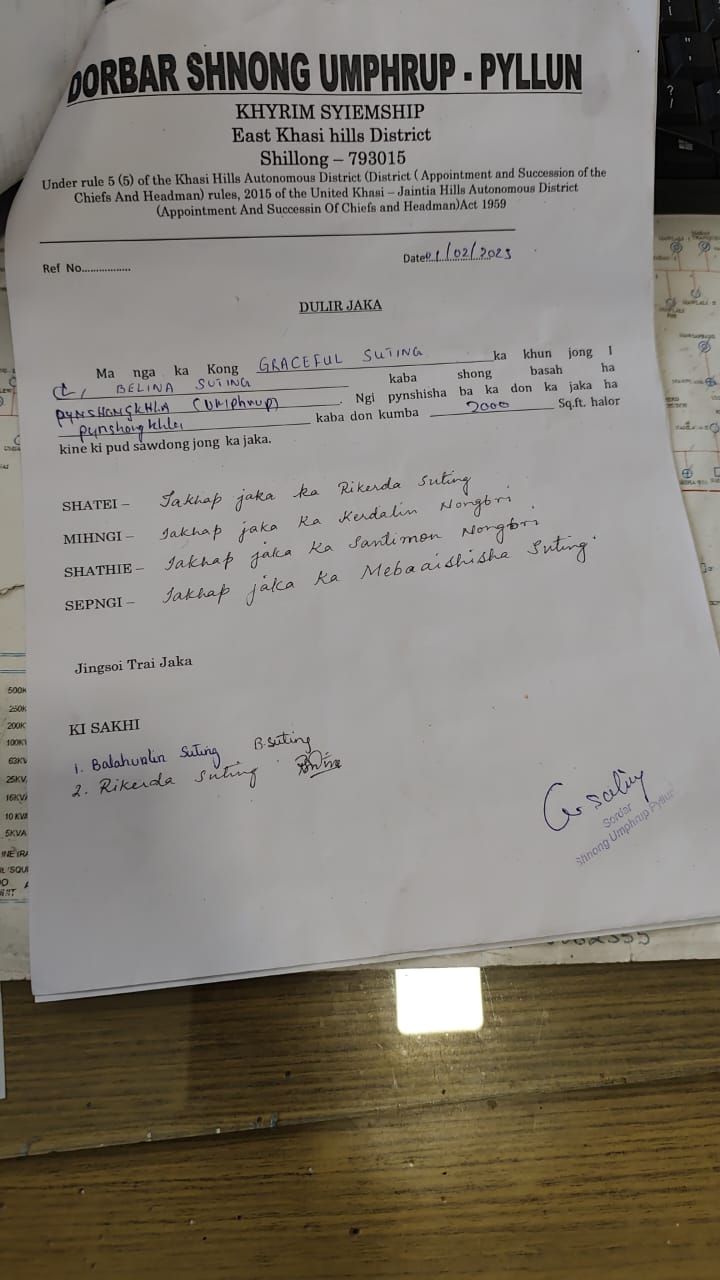 DORBAR SHNONG UMPHRUP - PYLLUN
KHYRIM SYIEMSHIP
East Khasi hills District
Shillong – 793015
Under rule 5 (5) of the Khasi Hills Autonomous District (District ( Appointment and Succession of the
Chiefs And Headman) rules, 2015 of the United Khasi – Jaintia Hills Autonomous District
(Appointment And Successin Of Chiefs and Headman)Act 1959
Ref No................
Date01/02/2023
DULIR JAKA
Ma nga ka Kong GRACEFUL SUTING ka khun jong I
(L) BELINA SUTING kaba shong basah ha
PYNSHONGKHLA (UMPHRUP). Ngi pynshisha ba ka don ka jaka ha
Pynshongkhla kaba don kumba 2000 Sq.ft. halor
kine ki pud sawdong jong ka jaka.
SHATEI – Jakhap jaka ka Rikerda Suting
MIHNGI – Jakhap jaka ka Kerdalin Nongbri
SHATHIE – Jakhap jaka ka Santimon Nongbri
SEPNGI – Jakhap jaka ka Mebaaishisha Suting
Jingsoi Trai Jaka
KI SAKHI
1. Balahunlin Suting B.Suting
2. Rikerda Suting
Sordar
Shnong Umphrup Pyllun
500K
250K
200K
100K
63KV
25KV
16KV
10 KVA
5KVA